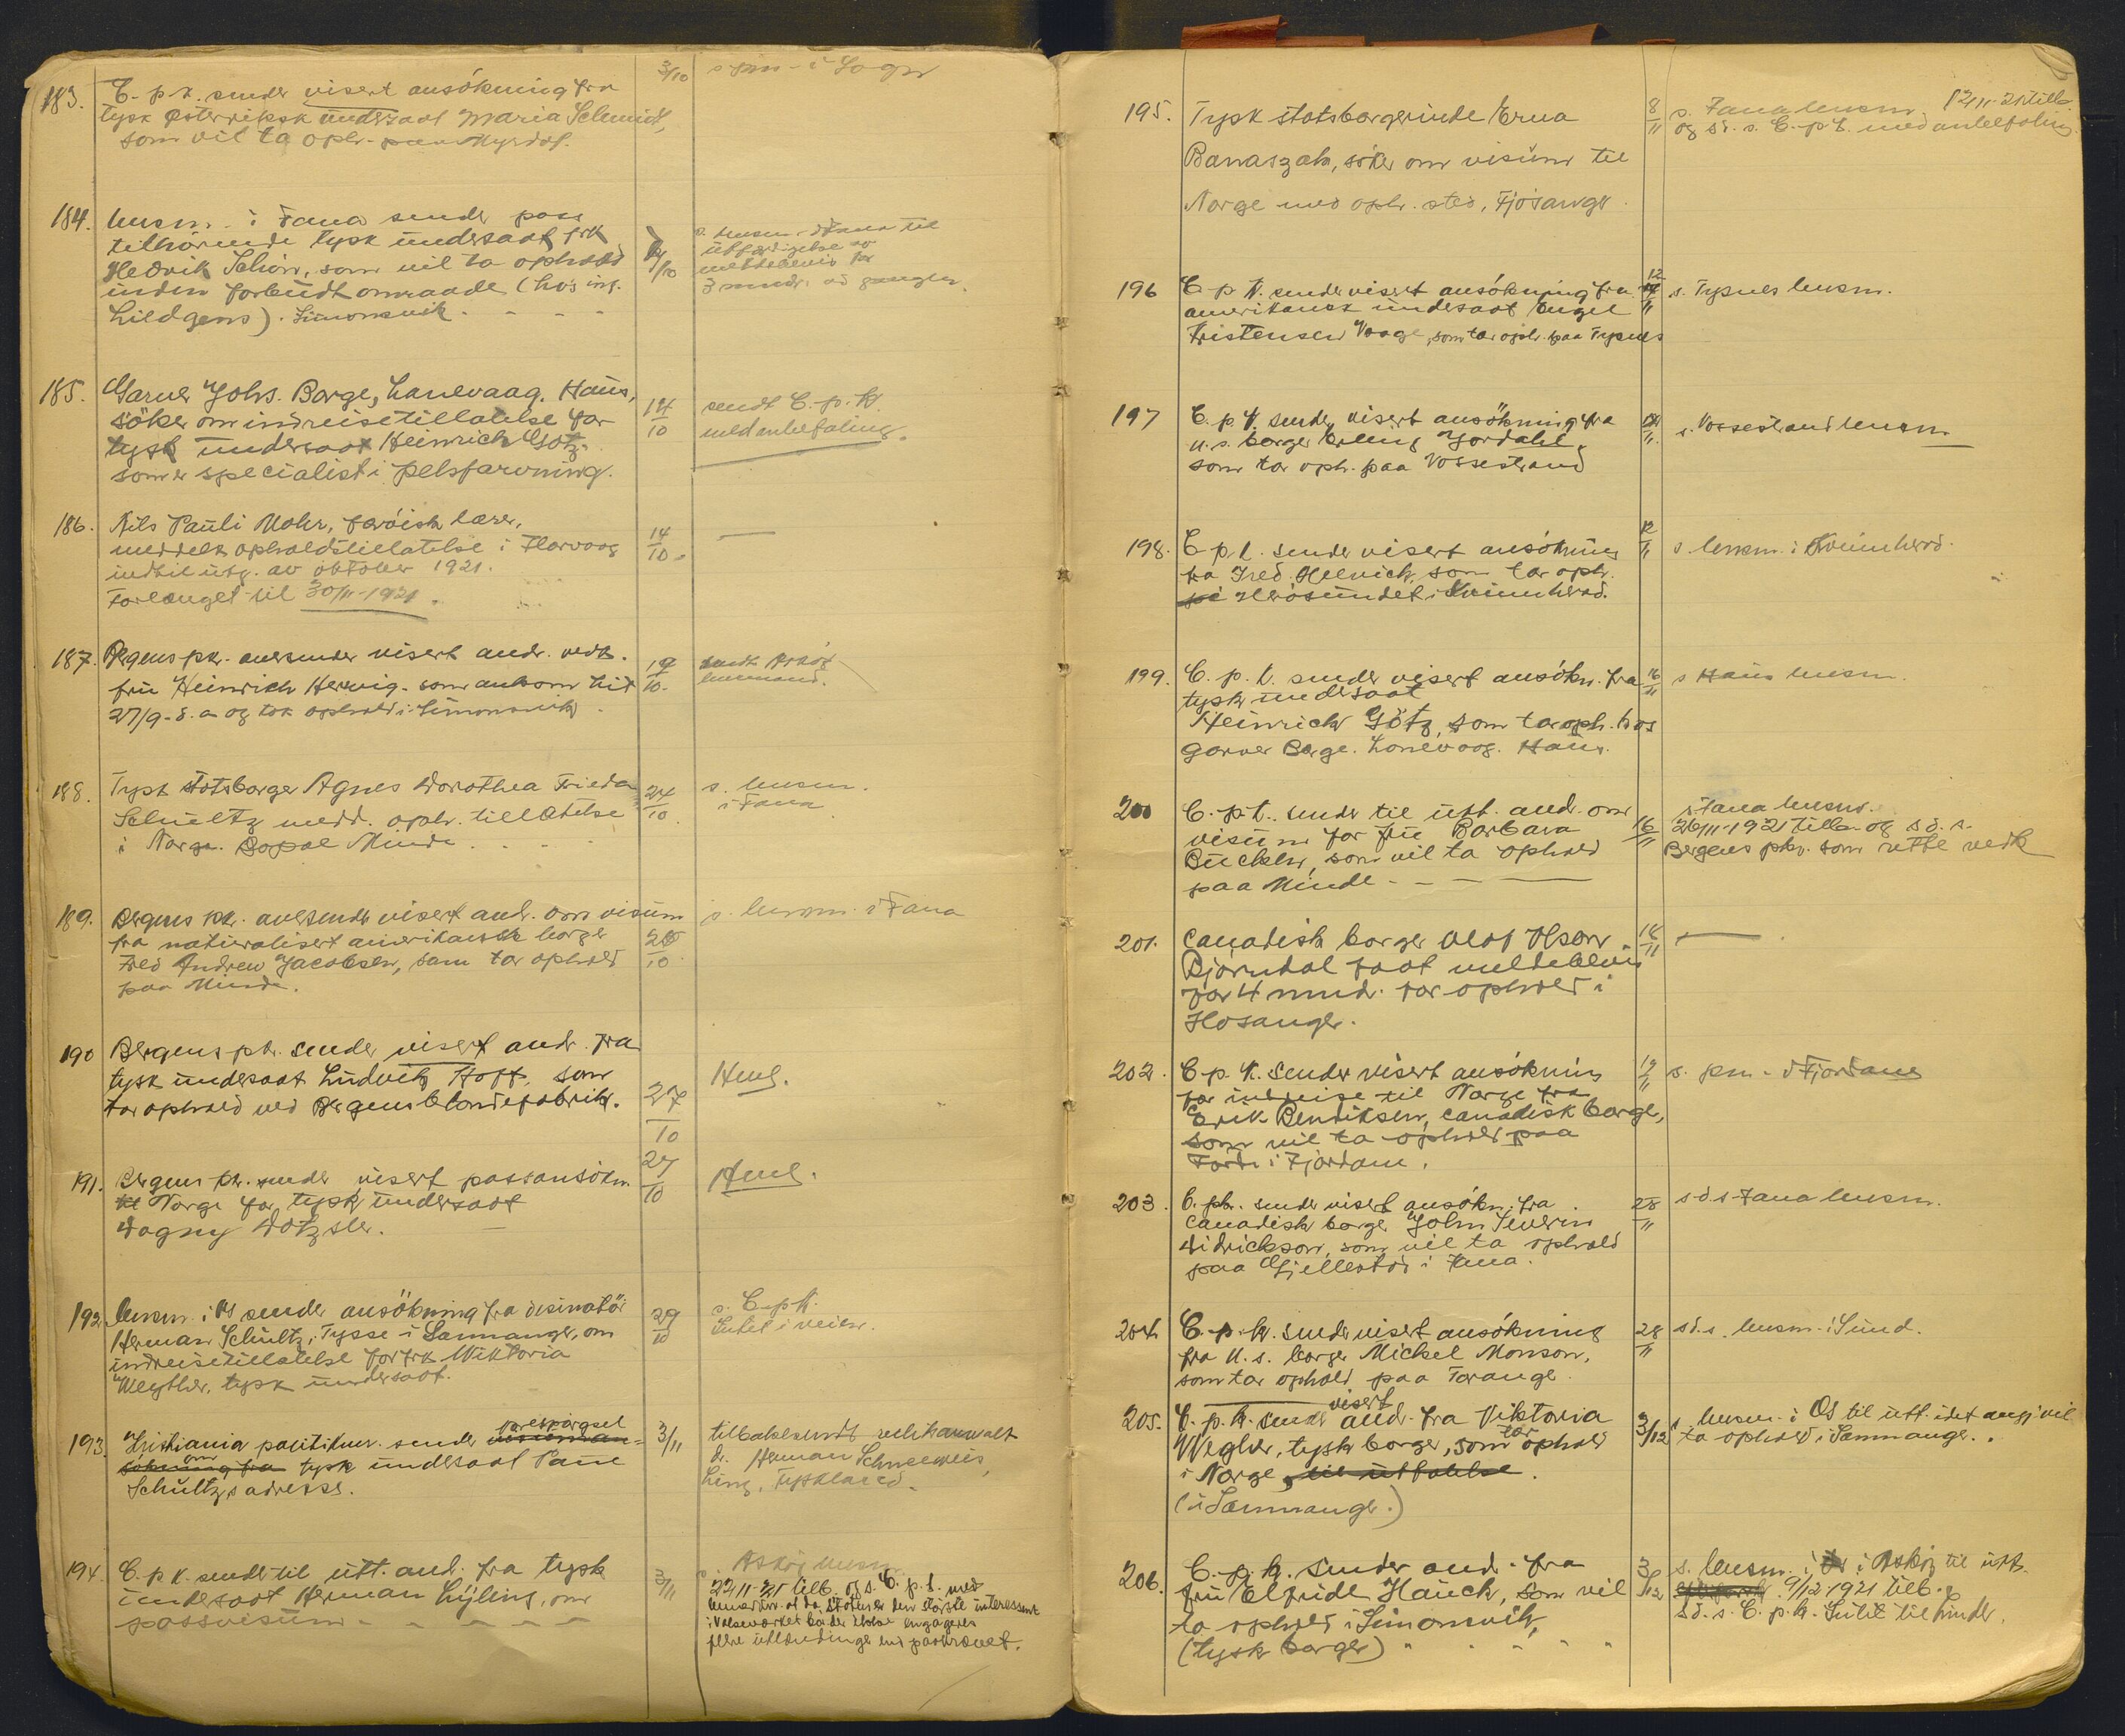 183. C. p. k. sender visert ansökning fra
tysk österriksk undersaat Maria Schmidt,
som vil ta oph. paa Myrdal.
3/10 s. pm. i Sogn
184. lensm. i Fana sender pass
tilhörende tysk undersaat frk
Hedvik Schön, som vil ta ophold
inden forbudt omraade (hos ing.
Lildgens). Simonsvik.
/10 s. lensm. i Fana til
utfærdigelse av
meldebevis for
3 mndr. ad gangen.
185. Garver Johs. Borge, Lonevaag. Haus,
söker om indreisetillatelse for
tysk undersaat Heinrich Götz
som er specialist i pelsfarvning.
14/10 sendt C. p. k.
med anbefaling.
186. Nils Pauli Mohr, faröisk lærer,
meddelt opholdstillatelse i Florvaag
indtil utg. av oktober 1921.
Forlænget til 30/11-1921.
14/10 —
187. Bergens pk. oversender visert andr. vedk.
fru Heinrich Herwig. som ankom hit
27/9 d. a. og tok ophold i Simonsvik
19/10. sendt Askøy
lensmand.
188. Tysk statsborger Agnes Dorothea Frieda
Schultz medd. oph. tillatelse
i Norge. Bopæl Minde
24/10. s. lensm.
i Fana
189. Bergens pk. oversender visert and. om visum
fra naturalisert amerikansk borger
Fred Andrew Jacobsen, som tar ophold
paa Minde.
25/10 s. lensm. i Fana
190 Bergens pk. sender visert andr. fra
tysk undersaat Ludvig Hoff, som
tar ophold ved Bergens Blondefabrik.
27/10 Henl.
191. Bergens pk. sender visert passansökn.
til Norge for tysk undersaat
Dagny Dotzsler.
27/10 Henl.
192 lensm. i Os sender ansökning fra disinatör
Herman Schultz, Tysse i Samnanger, om
indreisetillatelse for frk Wiktoria
Weghler, tysk undersaat.
29/10 s. C. p. k.
Intet i veien.
193. Kristiania politikm. sender forespörgsel
om tysk undersaat Paul
Schultz's adresse.
3/11 tilbakesendt
dr. Herman Schneeweis,
Linz, Tyskland.
194. C. p. k. sender til utt. and. fra tysk
undersaat Herman Lÿling, om
passvisum
3/11 s. Askøy lensm.
22/11-21 tilb. og s. C. p. k. med
bemerkn. at da Stotmer den störste interessent
i Valseverket bör der ikke engageres
flere utlændinge end paakrævet.
195. Tysk statsborgerinde Erna
Banaszak, söker om visum til
Norge med oph. sted, Fjösanger.
8/11 s. Fana lensm. 12/11-21 tilb.
og sd. s. C. p. k. med anbefaling
196 C. p. k. sender visert ansökning fra
amerikansk undersaat Engel
Kristensen Vaage, som tar oph. paa Tysnes
12/11 s. Tysnes lensm.
197 C. p. k. sender visert ansökning fra
U.S. borger Erling Jordahl,
som tar oph. paa Vossestrand
12/11. s. Vossestrand lensm
198. C p. k. sender visert ansökning
fra Fred Helvick, som tar oph.
på Herösundet i Kvinnherad.
12/11 s lensm. i Kvinnherad.
199. C. p. k. sender visert ansökn. fra
tysk undersaat
Heinrich Götz, som tar oph. hos
garver Borge. Lonevaag. Haus.
16/11 s Haus lensm.
200 C. p. k. sender til utt. and. om
visum for fru Barbara
Bücklein, som vil ta ophold
paa Minde
16/11 s. Fana lensm.
26/11-1921 tilb. og s.d. s.
Bergens pk. som rette vedk
201. Canadisk borger Olaf Olson
Bjørndal faat meldebevis
for 4 mnd. for ophold i
Hosanger.
18/11 —
202. C. p. k. sender visert ansökning
for indreise til Norge fra
Erik Bendiksen, canadisk borger,
som vil ta ophold paa
Förde i Fjordane.
19/11 s. pm. i Fjordane
203. C. pk. sender visert ansökn. fra
canadisk borger John Severin
Didrickson, som vil ta ophold
paa Gjellestad i Fana.
28/11 s d s Fana lensm.
204 C. p. k. sender visert ansökning
fra U.S. borger Michel Monson,
som tar ophold paa Torange
28/11 sd. s. lensm. i Sund.
205. C. p. k. sender visert andr. fra Viktoria
Wegler, tysk borger, som tar ophold
i Norge, til uttalelse.
(i Samnanger.)
3/12 s. lensm. i Os til utt. idet angj. vil
ta ophold i Samnanger.
206. C. p. k. sender and. fra
fru Elfride Hauck, som vil
ta ophold i Simonsvik,
(tysk borger)
3/12 s. lensm. i Askøy til utt.
9/12-1921 tilb. &
s.d. s. C. p. k. Intet til hinder.